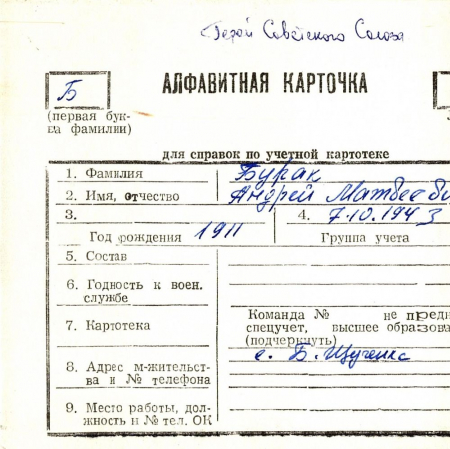 Герой Советского Союза
Б
АЛФАВИТНАЯ КАРТОЧКА
(первая бук-
ва фамилии)
для справок по учетной картотеке
1. Фамилия Бурак
2. Имя, отчество Андрей Матвееви
3. 4. 7.10.1943
Год рождения 1911 Группа учета
5. Состав
6. Годность к воен.
службе
Команда № не предн
7. Картотека
спецучет, высшее образова
(подчеркнуть)
с. Б.
8. Адрес м-жительст-
ва и № телефона
9. Место работы, дол-
жность и № тел. ОК